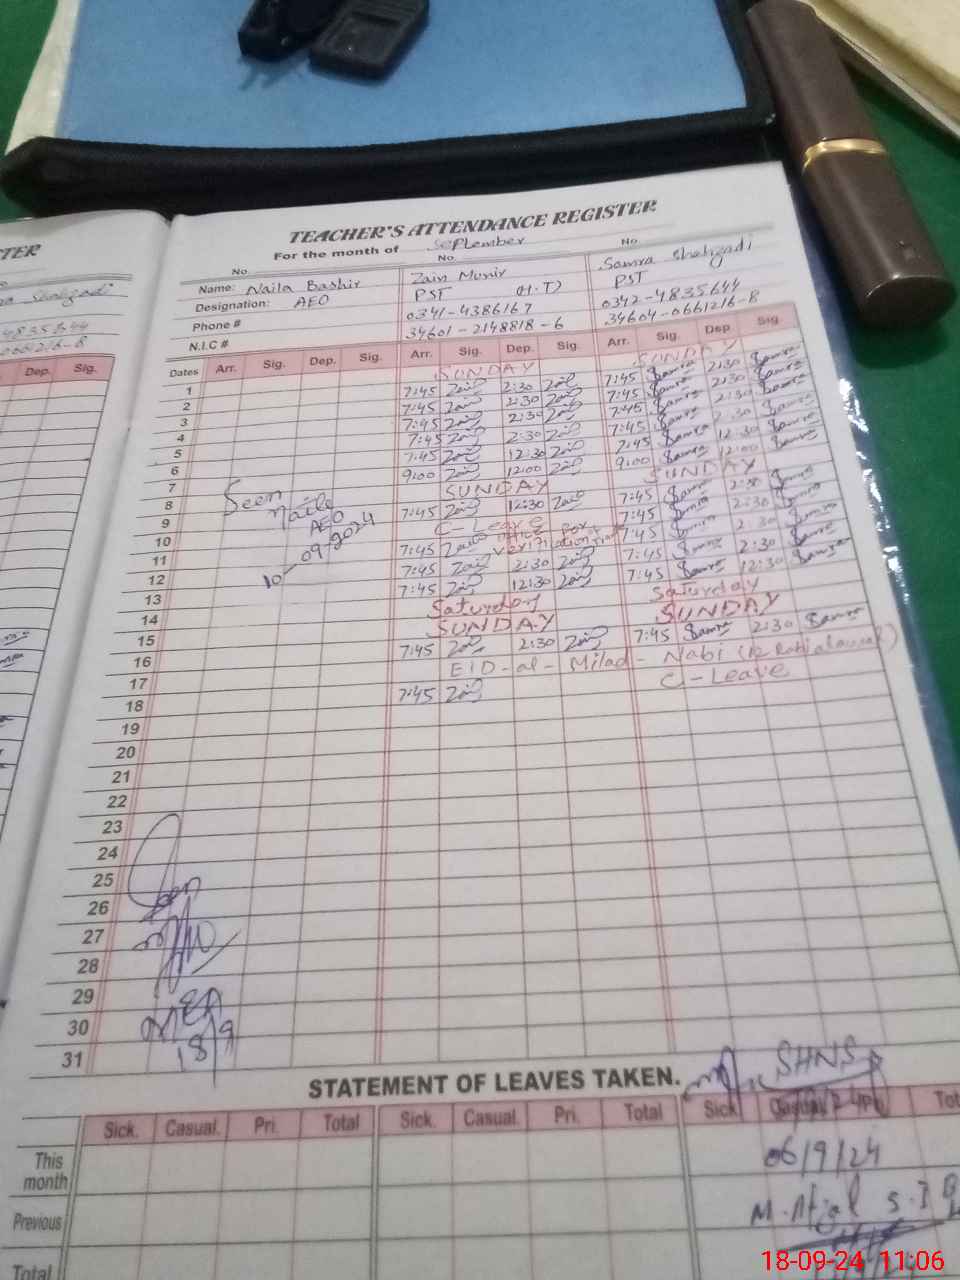 TER
TEACHER'S ATTENDANCE REGISTER
For the month of September
No. No. No.
Name: Naila Bashir Zain Munir Samra Shahzadi
Designation: AEO PST (H.T) PST
Phone # 0341-4386167 0342-4835644
N.I.C # 34601-2148818-6 34604-0661216-8
Shahzadi
4835644
Dep. Sig.
Dates Arr. Sig. Dep. Sig. Arr. Sig. Dep. Sig. Arr. Sig. Dep Sig
1 SUNDAY SUNDAY
2 7:45 Zain 2:30 Zain 7:45 Samra 2:30 Samra
3 7:45 Zain 2:30 Zain 7:45 Samra 2:30 Samra
4 7:45 Zain 2:30 Zain 7:45 Samra 2:30 Samra
5 7:45 Zain 2:30 Zain 7:45 Samra 2:30 Samra
6 7:45 Zain 12:30 Zain 7:45 Samra 12:30 Samra
7 9:00 Zain 12:00 Zain 9:00 Samra 12:00 Samra
8 SUNDAY SUNDAY
9 7:45 Zain 12:30 Zain 7:45 Samra 2:30 Samra
10 C-Leave 7:45 Samra 2:30 Samra
11 7:45 Zain office for verification 7:45 Samra 2:30 Samra
12 7:45 Zain 2:30 Zain 7:45 Samra 2:30 Samra
13 7:45 Zain 12:30 Zain 7:45 Samra 12:30 Samra
14 Saturday Saturday
15 SUNDAY SUNDAY
16 7:45 Zain 2:30 Zain 7:45 Samra 2:30 Samra
17 EID-al-Milad-Nabi (12 Rabi ul awal)
18 7:45 Zain C-Leave
Seen
Naila
AEO
10-09-2024
19
20
21
22
23
24
25
26
27
28
29
30
31
Seen
MEA
18/9
STATEMENT OF LEAVES TAKEN.
SHNS
Sick. Casual. Pri. Total Sick. Casual. Pri. Total Sick Casual Tot
This month
06/9/24
Previous
M. Afzal S.I
Total
18-09-24 11:06